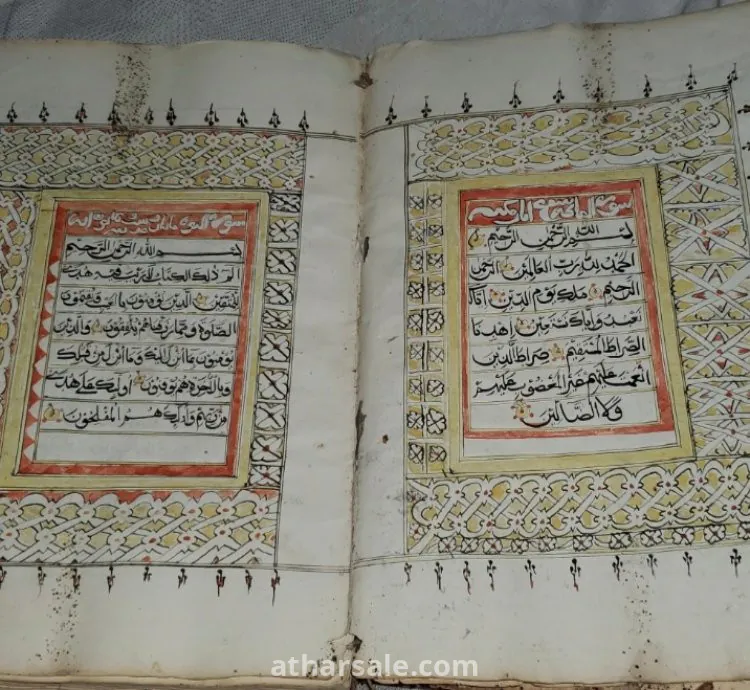 سورة الفاتحة سبع ايات مكية
بسم الله الرحمن الرحيم
الحمد لله رب العالمين الرحمن
الرحيم ملك يوم الدين اياك
نعبد واياك نستعين اهدنا
الصراط المستقيم صراط الذين
انعمت عليهم غير المغضوب عليهم
ولا الضالين
سورة البقرة
بسم الله الرحمن الرحيم
الم ذلك الكتاب لا ريب فيه هدى
للمتقين الذين يؤمنون بالغيب ويقيمون
الصلوة ومما رزقناهم ينفقون والذين
يؤمنون بما انزل اليك وما انزل من قبلك
وبالاخرة هم يوقنون اولئك على هدى
من ربهم واولئك هم المفلحون
atharsale.com